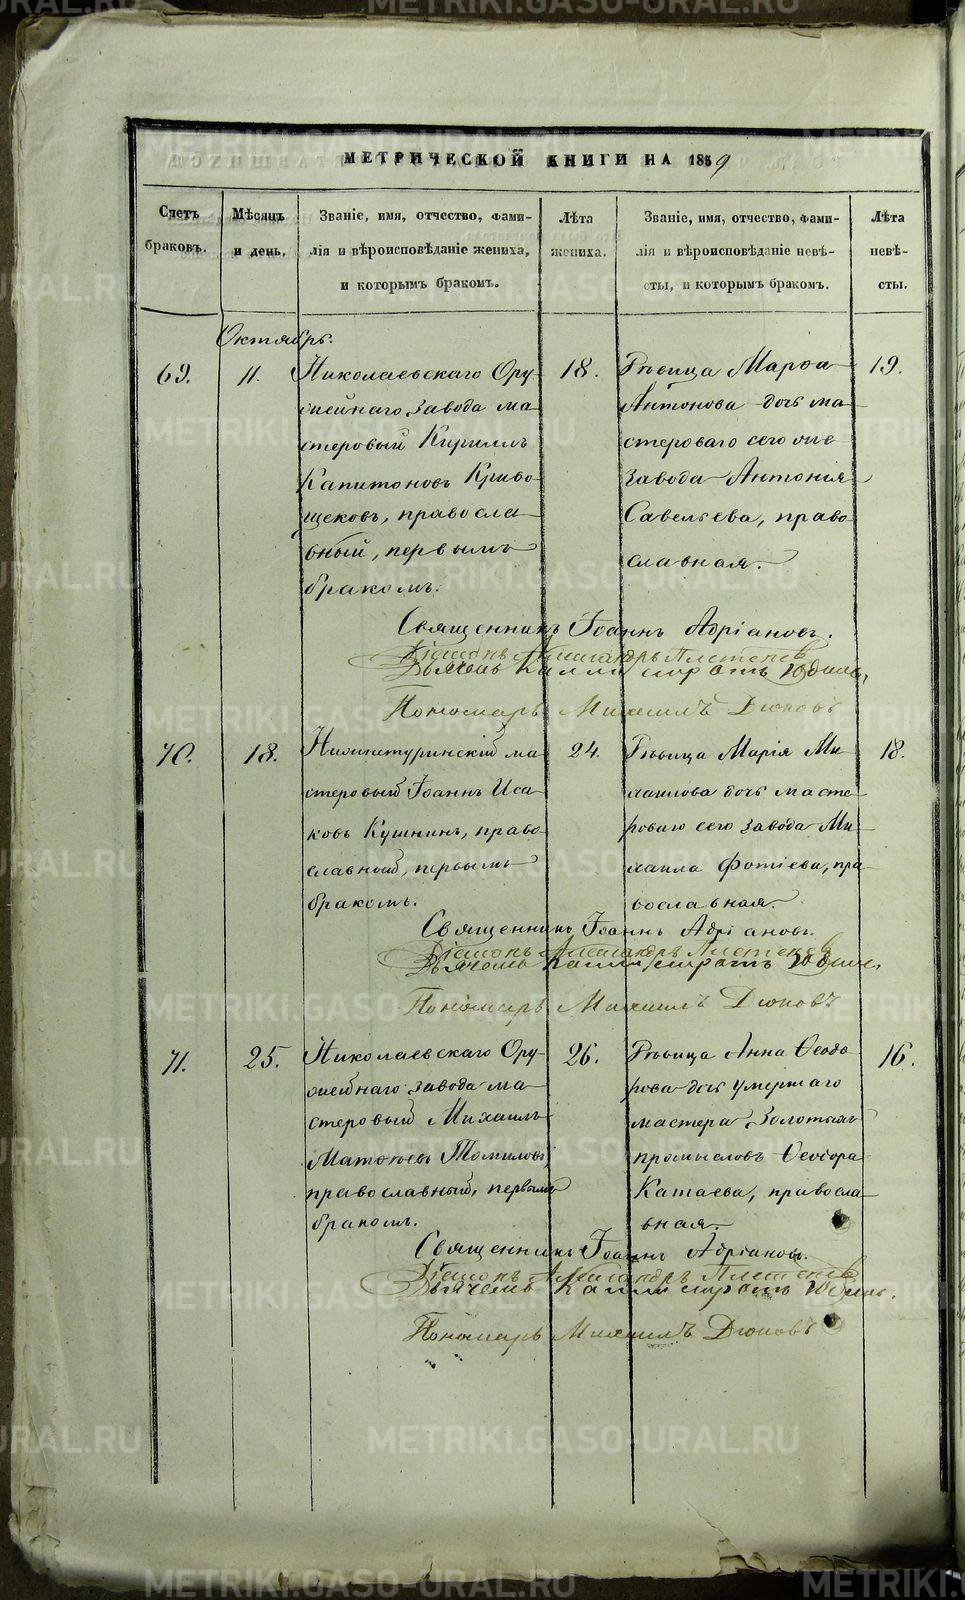 МЕТРИЧЕСКОЙ КНИГИ НА 1859
Счетъ браковъ.
Мѣсяцъ и день.
Званіе, имя, отчество, фами-
лія и вѣроисповѣданіе жениха,
и которымъ бракомъ.
Лѣта жениха.
Званіе, имя, отчество, фами-
лія и вѣроисповѣданіе невѣ-
сты, и которымъ бракомъ.
Лѣта невѣ-
сты.
Октябрь.
69.
11.
Николаевскаго Ору
жейнаго завода ма-
стеровый Кириллъ
Капитоновъ Криво
щековъ, правосла-
вный, первымъ
бракомъ.
18.
Дѣвица Марѳа
Антонова дочь ма-
стероваго сего же
завода Антонія
Савельева, право
славная.
19.
Священникъ Іоаннъ Адріановъ.
Діаконъ Александръ
Дьячекъ
Пономарь Михаилъ Дюковъ
70.
18.
Нижнетуринскій ма
стеровый Іоаннъ Иса
ковъ Кушнинъ, право
славный, первымъ
бракомъ.
24.
Дѣвица Марія Ми
хаилова дочь масте-
роваго сего завода Ми
хаила Фотіева, пра
вославная.
18.
Священникъ Іоаннъ Адріановъ.
Діаконъ Александръ
Дьячекъ
Пономарь Михаилъ Дюковъ
71.
25.
Николаевскаго Ору-
жейнаго завода ма-
стеровый Михаилъ
Матѳеевъ Томиловъ,
православный, первымъ
бракомъ.
26.
Дѣвица Анна Ѳеодо
рова дочь умершаго
мастера Золотыхъ
промысловъ Ѳеодора
Катаева, правосла-
вная.
16.
Священникъ Іоаннъ Адріановъ.
Діаконъ Александръ
Дьячекъ
Пономарь Михаилъ Дюковъ
METRIKI.GASO-URAL.RU